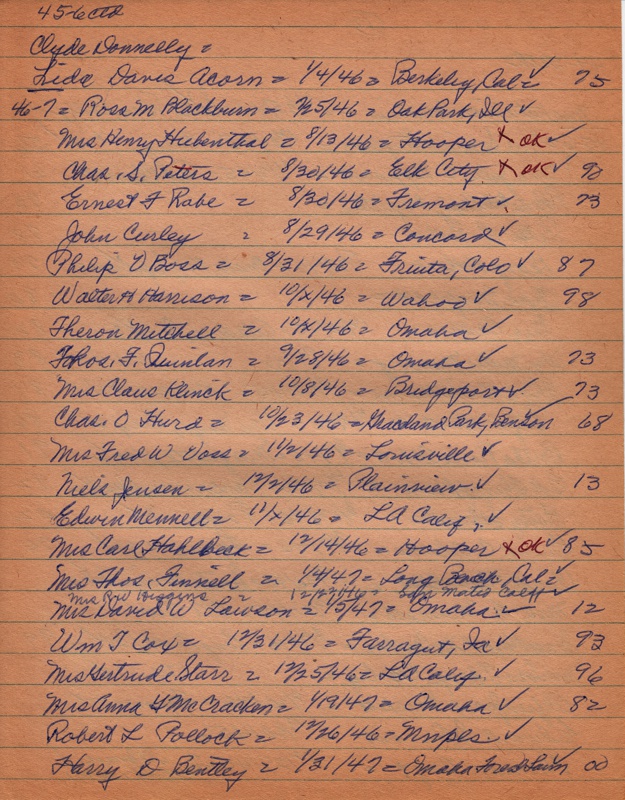 45-6 ctd
Clyde Donnelly =
Lida Davis Acorn = 1/4/46 = Berkeley, Cal = ✓ 75
46-7 = Ross M Blackburn = 7/25/46 = Oak Park, Ill ✓
Mrs Henry Hubenthal = 8/13/46 = Hooper X OK ✓
Chas. S. Peters = 8/30/46 = Elk City X OK ✓ 90
Ernest F Rabe = 8/30/46 = Fremont ✓ 73
John Curley = 8/29/46 = Concord ✓
Philip O Boss = 8/31/46 = Fruita, Colo ✓ 87
Walter H Harrison = 10/x/46 = Wahoo ✓ 98
Theron Mitchell = 10/x/46 = Omaha ✓
Thos. F. Quinlan = 9/28/46 = Omaha ✓ 73
Mrs Claus Klinck = 10/8/46 = Bridgeport ✓ 73
Chas. O Hurd = 10/23/46 = Graceland Park, Benson ✓ 68
Mrs Fred W Voss = 11/2/46 = Louisville ✓
Niels Jensen = 12/2/46 = Plainview ✓ 13
Edwin Mennell = 11/x/46 = LA Calif, ✓
Mrs Carl Hahlbeck = 12/14/46 = Hooper X OK ✓ 85
Mrs Thos. Finnell = 1/4/47 = Long Beach, Cal = ✓
Mrs Higgins = 12/27/46 = San Mateo Calif ✓
Mrs David W Lawson = 1/5/47 = Omaha ✓ 12
Wm T Cox = 12/31/46 = Farragut, Ia ✓ 93
Mrs Gertrude Starr = 12/25/46 = LA Calif. ✓ 96
Mrs Anna Y McCracken = 1/19/47 = Omaha ✓ 82
Robert L Pollock = 12/26/46 = Mnpls ✓
Harry D Bentley = 1/31/47 = Omaha Forest Lawn ✓ 00